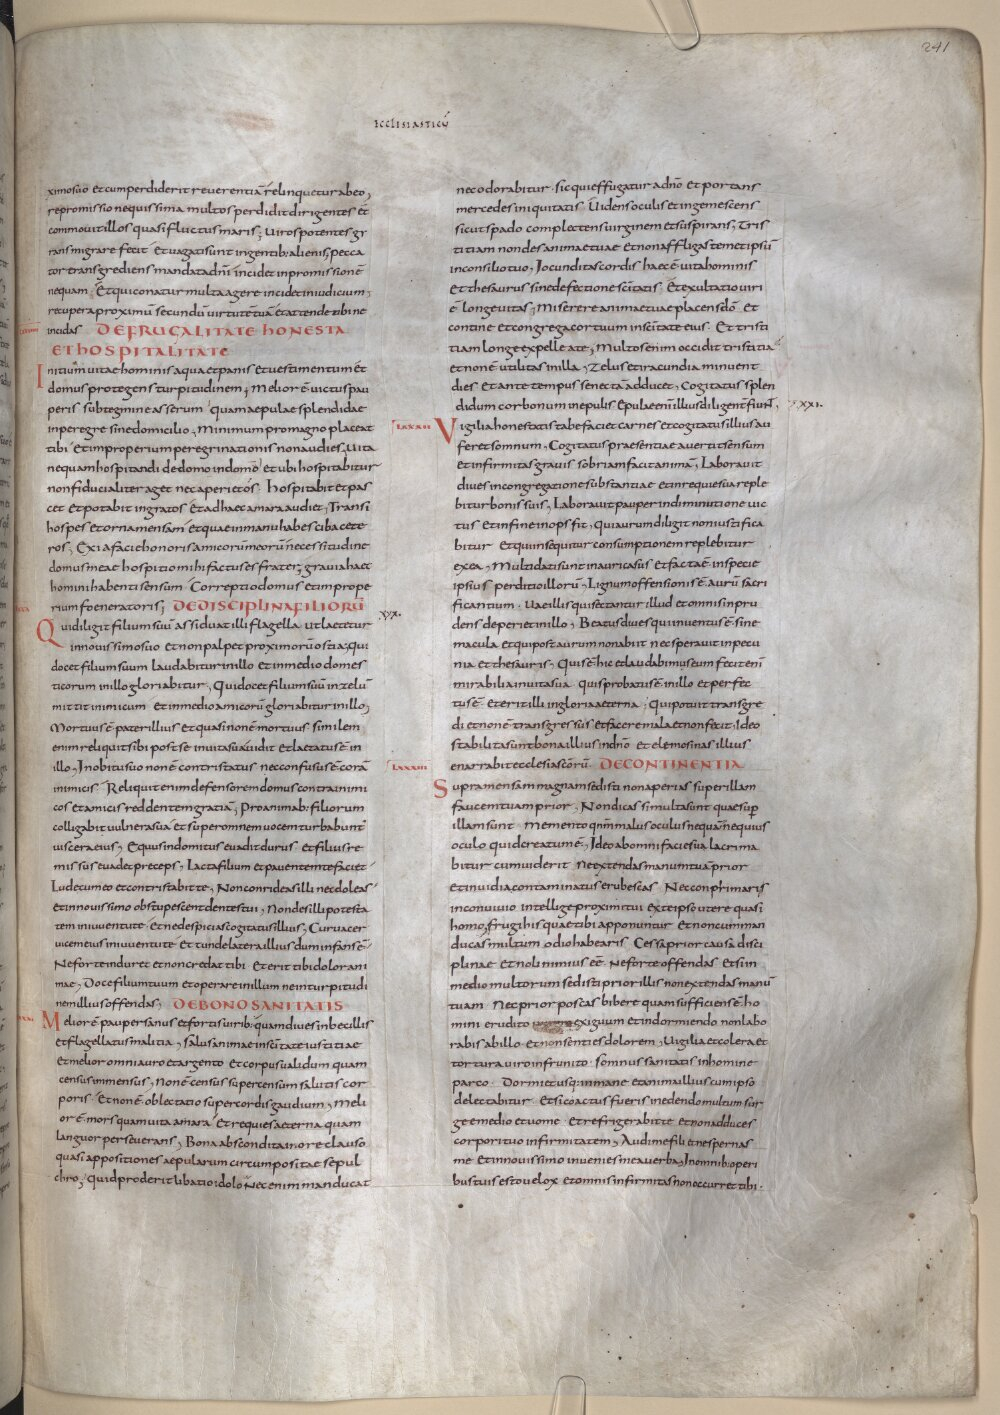 241
ecclesiasticū
ximo suo et cum perdiderit reverentiā relinquetur ab eo;
repromissio nequissima multos perdidit dirigentes et
commovit illos quasi fluctus maris; Viros potentes gr
ans migrare fecit et vagati sunt in gentib; alienis, pecca
tor transgrediens mandata dñi incidet in promissionē
nequam. Et qui conatur multa agere incidet in iudicium;
recupera proximū secundū virtutē tuā et attende tibi ne
incidas DE FRUGALITATE HONESTA
ET HOSPITALITATE
Initium vitae hominis aqua et panis et vestimentum et
domus protegens turpitudinem; Melior ē victus pau
peris sub tegmine asserum quam aepulae splendidae
in peregre sine domicilio; Minimum pro magno placeat
tibi et improperium peregrinationis non audies; Vita
nequam hospitandi de domo in domō et ubi hospitabitur
non fiducialiter aget nec aperiet os. hospitabit et pas
cet et potabit ingratos et ad haec amara audiet; Transi
hospes et orna mensam et quae in manu habes ciba cete
ros; Exi a facie honoris amicorū meorū necessitudine
domus meae hospitio mihi factus es frater; gravia haec
homini habenti sensum. Correptio domus et imprope
rium foeneratoris; DE DISCIPLINA FILIORŪ
Qui diligit filium suū assiduat illi flagella ut laetetur
XXX.
in novissimo suo et non palpet proximorū ostia; qui
docet filium suum laudabitur in illo et in medio domes
ticorum in illo gloriabitur; Qui docet filium suū in zelū
mittit inimicum et in medio amicorū gloriabitur in illo;
Mortuus ē pater illius et quasi non ē mortuus similem
enim reliquit sibi post se in vita sua vidit et laetatus ē in
illo; In obitu suo non ē contristatus nec confusus ē corā
inimicis. Reliquit enim defensorem domus contra inimi
cos et amicis reddentem gratiā; Pro animab; filiorum
colligabit vulnera sua et super omnem vocem turbabunt
viscera eius; Equus indomitus evadit durus et filius re
missus evadet preceps; Lacta filium et paventem te faciet
Lude cum eo et contristabit te; Non conrideas illi ne doleas
et in novissimo obstupescent dentes tui; Non des illi potesta
tem in iuventute et ne despicias cogitatus illius; Curva cer
vicem eius in iuventute et tunde latera illius dum infans ē
Ne forte induret et non credat tibi et erit tibi dolor ani
mae; Doce filium tuum et operare in illum ne in turpitudi
nem illius offendas; DE BONO SANITATIS
Melior ē pauper sanus et fortis virib; quam dives inbecillis
et flagellatus malitia; Salus animae in scītate iustitiae
et melior omni auro et argento et corpus validum quam
census inmensus; Non ē census super censum salutis cor
poris. Et non ē oblectatio super cordis gaudium; Meli
or ē mors quam vita amara et requies aeterna quam
languor perseverans; Bona abscondita in ore clauso
quasi appositiones aepularum circumpositae sepul
chro; Quid proderit libatio idolo Nec enim manducat
nec odorabitur. sic qui effugatur a dnō et portans
mercedes iniquitatis. Videns oculis et ingemescens
sicut spado complectens virginem et suspirans; Tris
titiam non des animae tuae et non affligas temet ipsū
in consilio tuo; Jocunditas cordis haec ē vita hominis
et thesaurus sine defectione scītatis. Et exultatio viri
ē longevitas; Miserere animae tuae placens dō. et
contine et congrega cor tuum in scītate eius. Et tristi
tiam longe expelle a te; Multos enim occidit tristitia
et non ē utilitas in illa; Zelus et iracundia minuent
dies et ante tempus senectā adducet; Cogitatus splen
didum cor bonum in epulis epulae enī illius diligent fiunt.
XXXI.
LXXXII Vigilia honestatis tabefaciet carnes et cogitatus illius au
feret somnum. Cogitatus praesentiae avertit sensum
et infirmitas gravis sobriam facit animā; Laboravit
dives in congregatione substantiae et in requie sua reple
bitur bonis suis; Laboravit pauper in diminutione vic
tus et in fine inops fit; qui aurum diligit non iustifica
bitur et qui insequitur consumptionem replebitur
ex ea; Multi dati sunt in auri casus et facta ē in specie
ipsius perditio illorū; Lignum offensionis ē aurū sacri
ficantium. Vae illis qui sectantur illud et omnis inpru
dens deperiet in illo; Beatus dives qui inventus ē sine
macula et qui post aurum non abiit nec speravit in pecu
nia et thesauris; Quis ē hic et laudabimus eum fecit enī
mirabilia in vita sua. Quis probatus ē in illo et perfec
tus ē et erit illi in gloria aeterna. Qui potuit transgre
di et non ē transgressus et facere mala et non fecit. Ideo
stabilita sunt bona illius in dnō et elemosinas illius
enarrabit ecclesia scōrū DE CONTINENTIA
LXXXIII
Supra mensam magnam sedisti non aperias super illam
faucem tuam prior; Non dicas si multa sunt quae sup̄
illam sunt. Memento qnm̄ malus oculus nequā nequius
oculo quid creatum ē; Ideo ab omni facie sua lacrima
bitur cum viderit. Ne extendas manum tuā prior
et invidia contaminatus erubescas. Nec conprimaris
in convivio intellige proximi tui ex te ipso utere quasi
homo frugi his quae tibi apponuntur et non cum man
ducas multum odio habearis. Cessa prior causā disci
plinae et noli nimius eē. Ne forte offendas et si in
medio multorum sedisti prior illis non extendas manū
tuam. Nec prior poscas bibere quam sufficiens ē ho
mini erudito exiguum et in dormiendo non labo
rabis ab illo. et non senties dolorem; Vigilia et colera et
tortura viro infrunito. somnus sanitatis in homine
parco. Dormiet usq; in mane et anima illius cum ipso
delectabitur. Et si coactus fueris in edendo multum sur
ge e medio et vome et refrigerabit te et non adduces
corpori tuo infirmitatem; Audi me fili et ne spernas
me et in novissimo invenies mea verba; In omnib; operi
bus tuis esto velox et omnis infirmitas non occurret tibi.